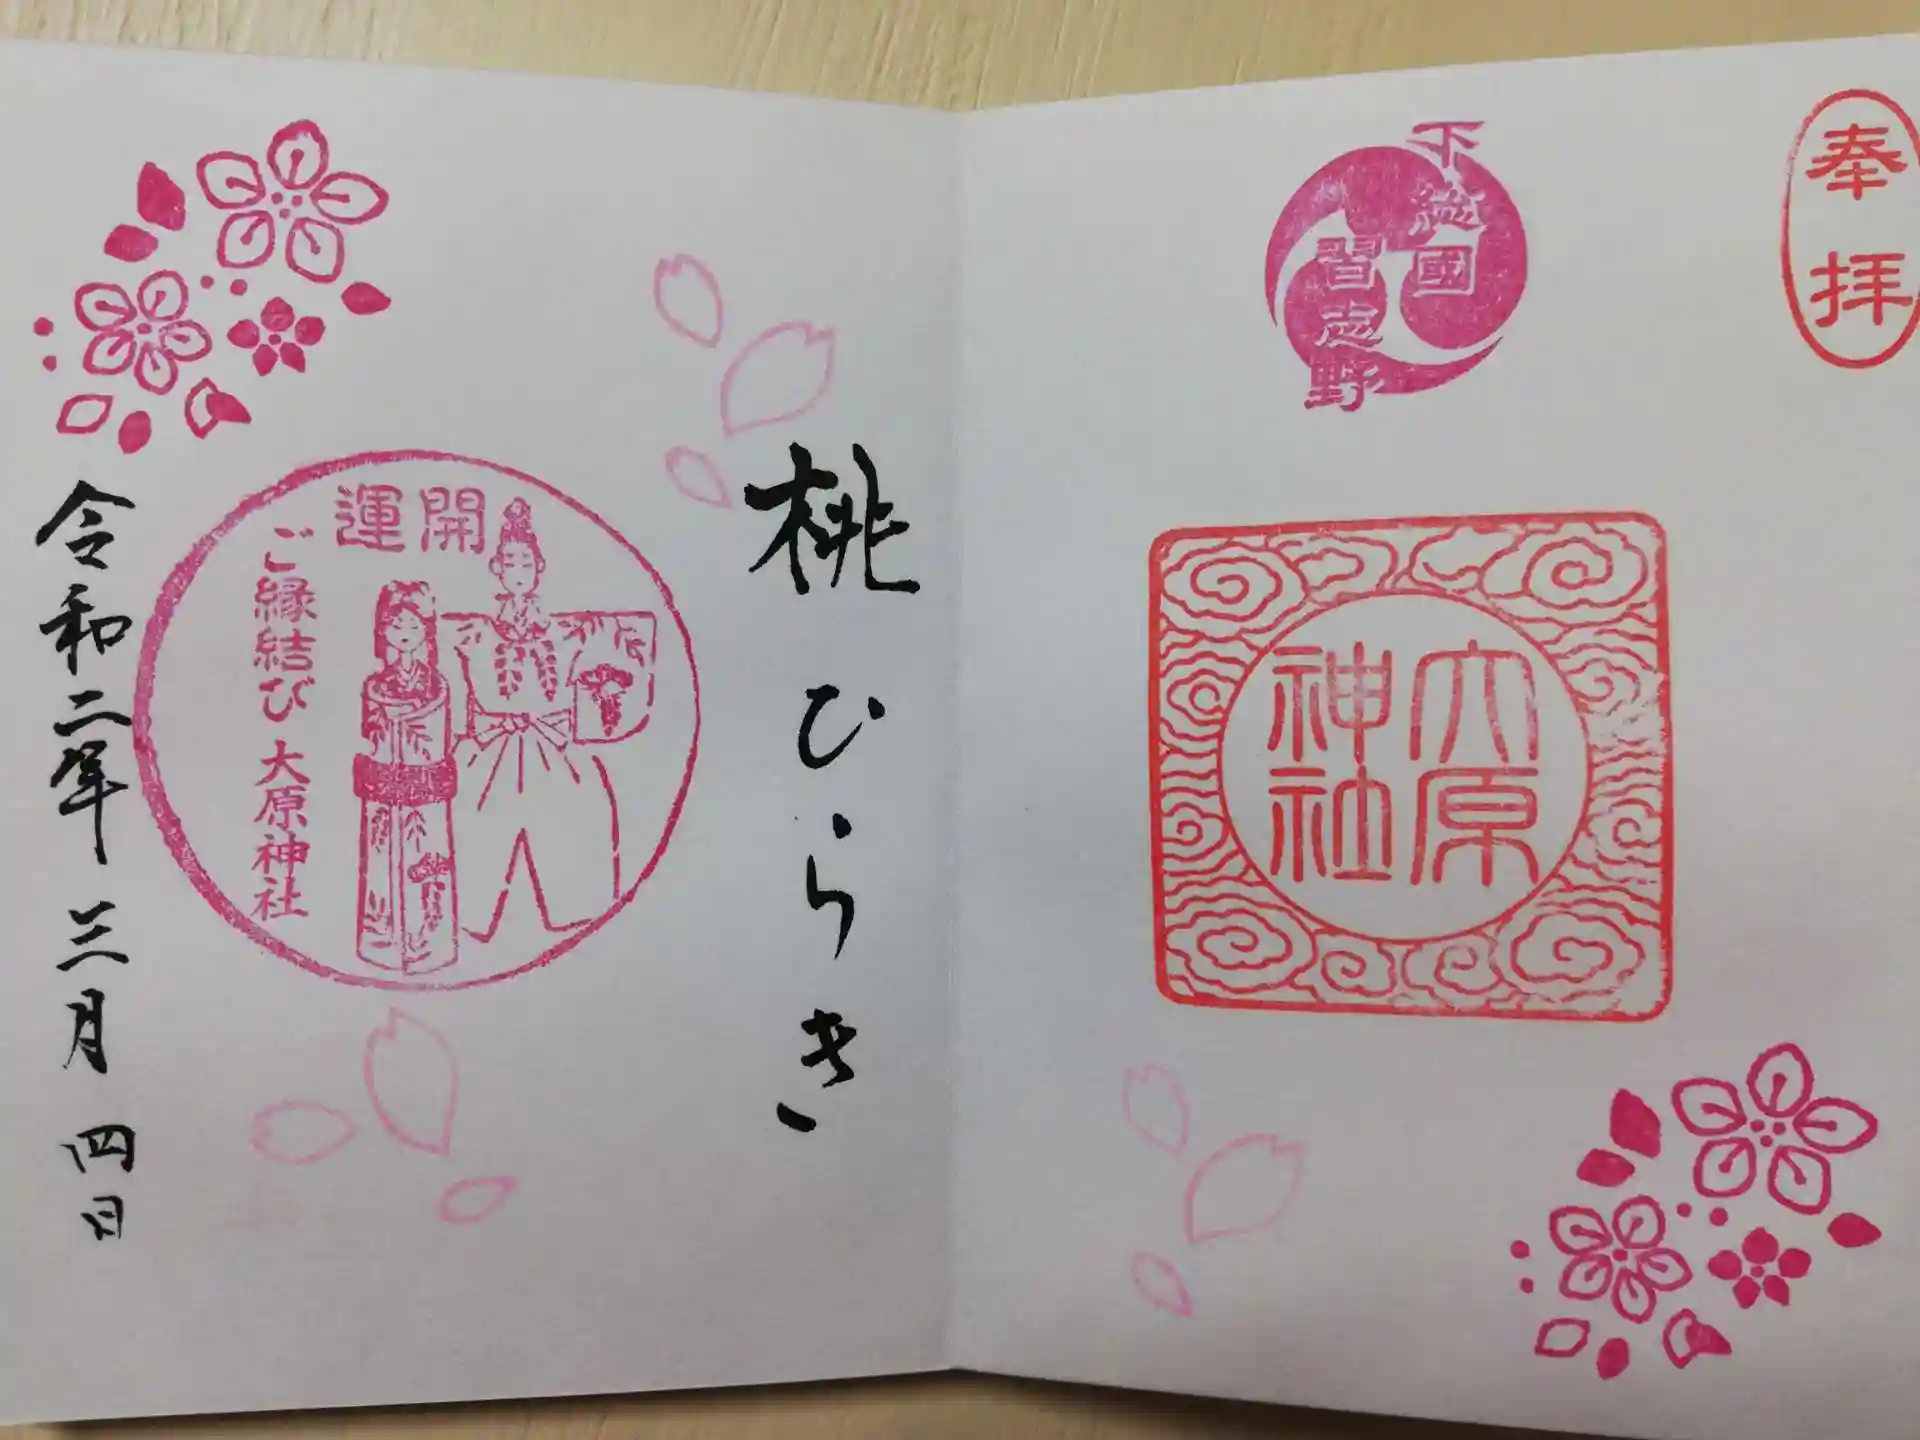 奉拝
下總國
習志野
大原
神社
桃ひらき
開運
ご縁結び 大原神社
令和二年 三月 四日